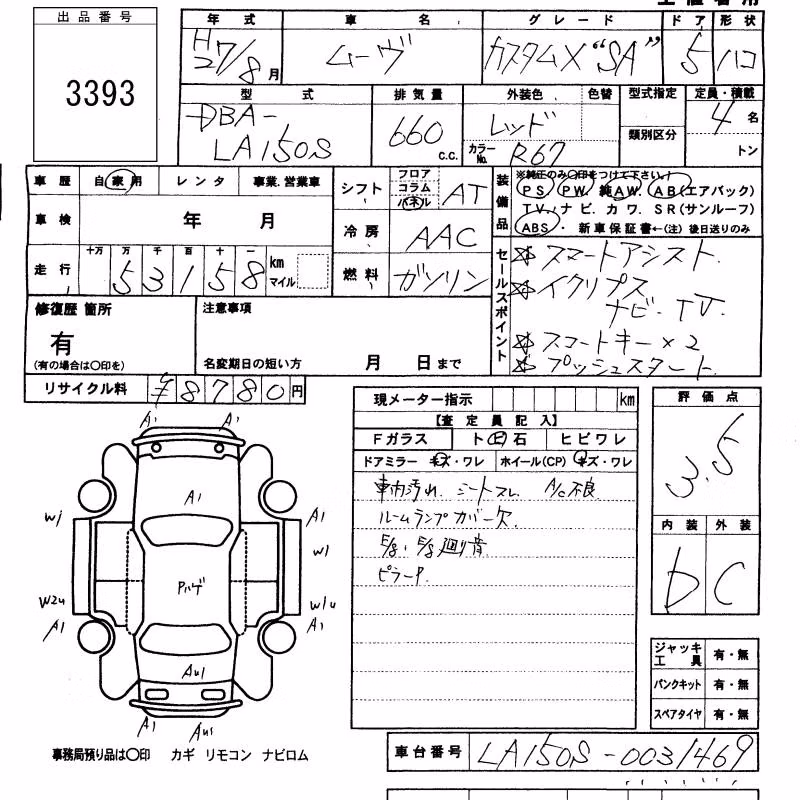 出品番号
3393
年式 車名 グレード ドア 形状
H27/8月 ムーヴ カスタムX "SA" 5 ハコ
型式 排気量 外装色 色替 型式指定 定員・積載
DBA-LA150S 660 C.C. レッド 類別区分 4名
カラーNo. R67 トン
車歴 自家用 レンタ 事業.営業車
シフト フロア コラム パネル AT
装備品 ※純正のみ○印をつけて下さい。
PS PW. 純AW. AB(エアバック)
TV. ナビ. カワ. SR(サンルーフ)
ABS . 新車保証書←(注) 後日送りのみ
車検 年 月
冷房 AAC
走行 十万 万 千 百 十 一
53158 km マイル
燃料 ガソリン
セールスポイント
スマートアシスト.
イクリプス
ナビ. TV.
スコートキー×2
プッシュスタート.
修復歴 箇所
有
(有の場合は○印を)
注意事項
名変期日の短い方 月 日まで
リサイクル料 ¥8780円
現メーター指示 km
【査定員記入】
Fガラス ト ビ 石 ヒビワレ
ドアミラー キズ・ワレ ホイール(CP) キズ・ワレ
車内汚れ. シートスレ. A/C不良
ルームランプカバー欠.
E/g. E/g廻り音
ピラーP.
評価点
3.5
内装 外装
b C
A1 A1
A1
W1 A1
W1
Pハゲ
W2U W1U
A1 A1
AU1
A1 AU1
ジャッキ工具 有・無
パンクキット 有・無
スペアタイヤ 有・無
事務局預り品は○印 カギ リモコン ナビロム
車台番号 LA150S-0031469